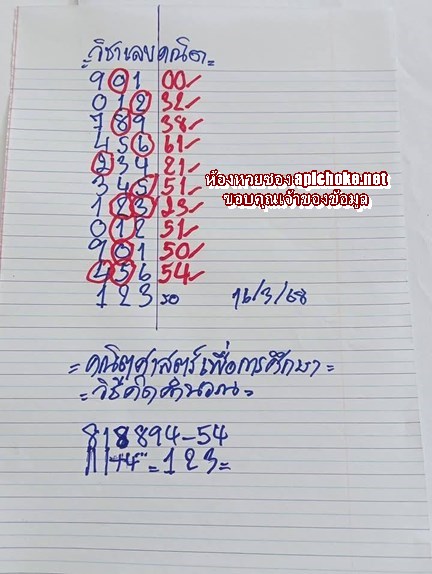 =วิชาเลขคณิต=
901 00✓
012 32✓
789 38✓
456 61✓
234 21✓
345 51✓
123 23✓
012 51✓
901 50✓
456 54✓
123 รอ
ห้องหวยซอง apichoke.net
ขอบคุณเจ้าของข้อมูล
16/3/68
=คณิตศาสตร์เพื่อการศึกษา=
=วิธีคิดคำนวณ=
818894-54
=123=